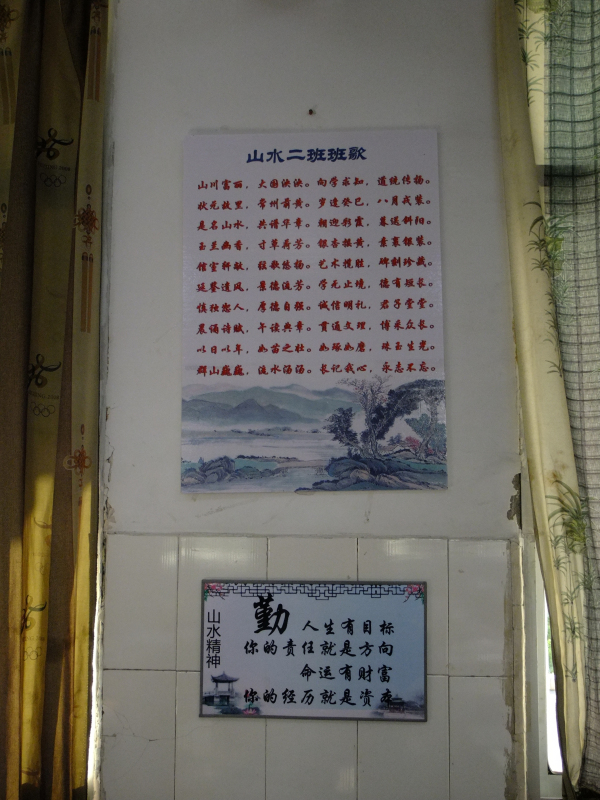 山水二班班歌
山川富丽，大国泱泱。向学求知，道统传扬。
状元故里，常州前黄。岁逢癸巳，八月戎装。
是名山水，共谱华章。朝迎彩霞，暮送斜阳。
玉兰幽香，寸草荷芳。银杏摇黄，素裹银装。
馆室轩敞，弦歌悠扬。艺术揽胜，碑刻珍藏。
延誉远风，景德流芳。学无止境，德有短长。
慎独恕人，厚德自强。诚信明礼，君子堂堂。
晨诵诗赋，午读典章。贯通文理，博采众长。
以日以年，如苗之壮。如琢如磨，珠玉生光。
群山巍巍，流水汤汤。长记我心，永志不忘。
山水精神
勤 人生有目标
你的责任就是方向
命运有财富
你的经历就是资本